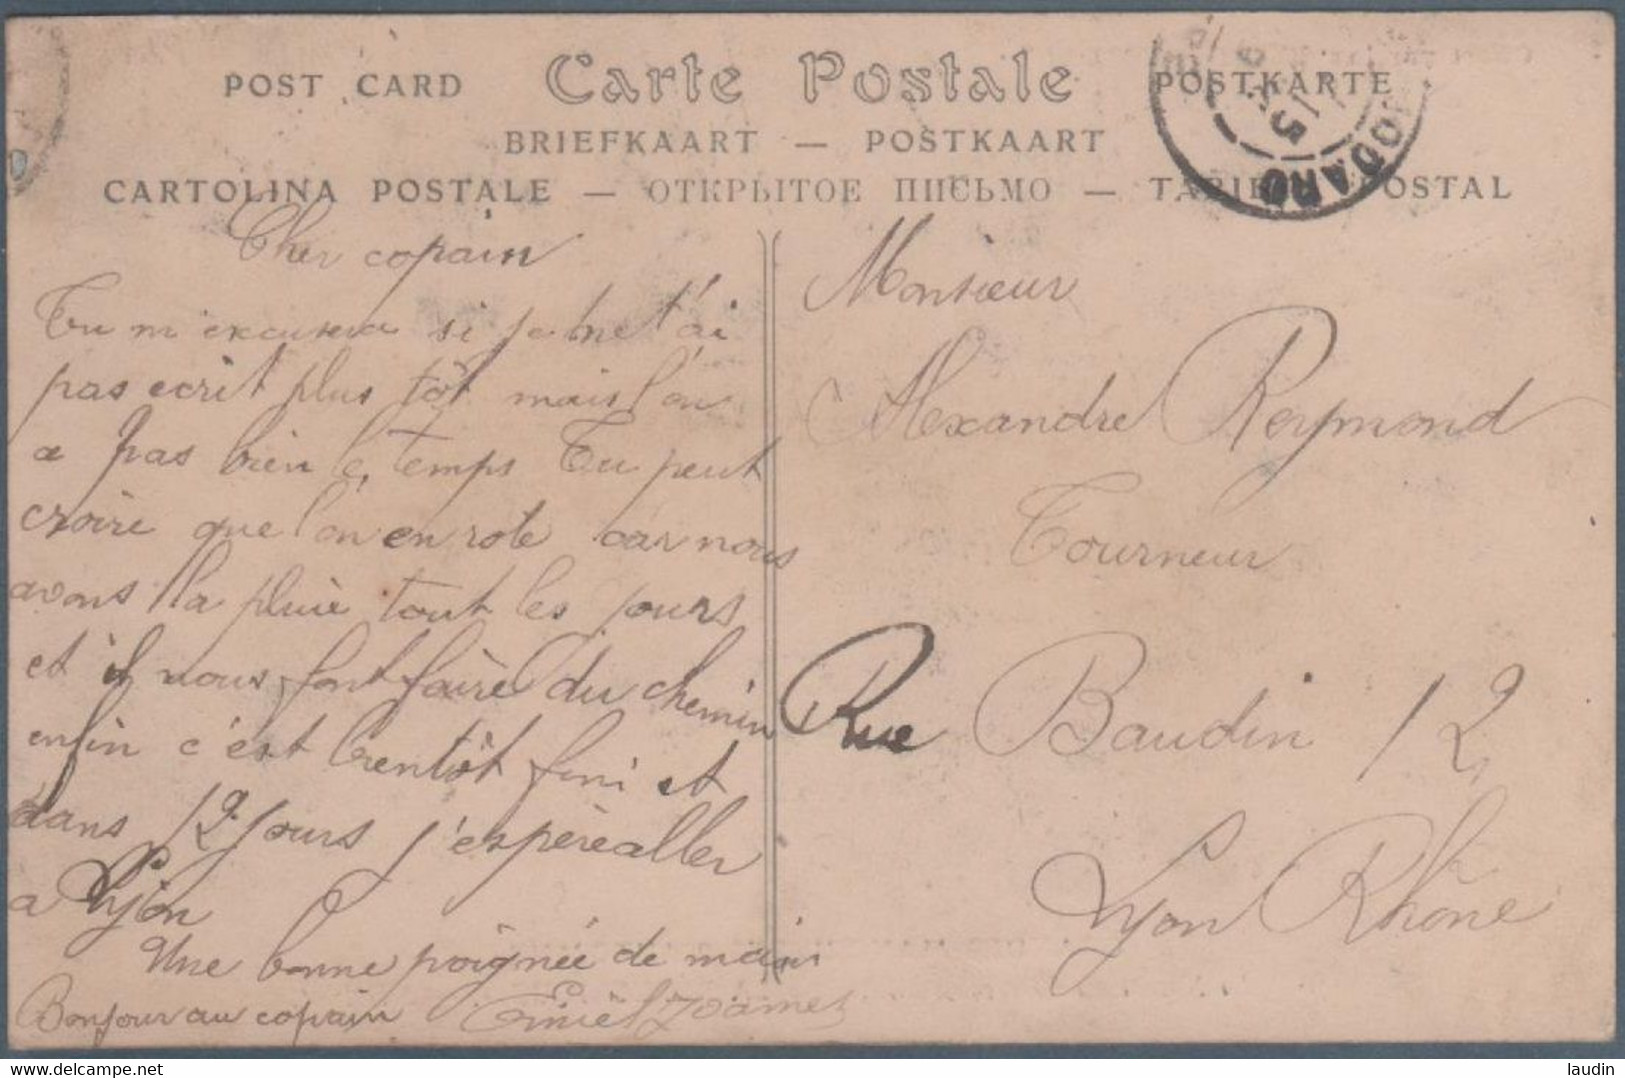 POST CARD Carte Postale POSTKARTE
BRIEFKAART — POSTKAART
CARTOLINA POSTALE — ОТКРЫТОЕ ПИСЬМО — POSTAL
15
Cher copain
Tu m'excusera si je ne t'ai
pas ecrit plus tôt mais l'on
a pas bien le temps Tu peut
croire que l'on en rote car nous
avons la pluie tout les jours
et il nous font faire du chemin
enfin c'est bientôt fini et
dans 12 jours j'espère aller
a Lyon
Une bonne poignée de mains
Bonjour au copain
Monsieur
Alexandre Reymond
Tourneur
Rue Baudin 12
Lyon Rhône
laudin